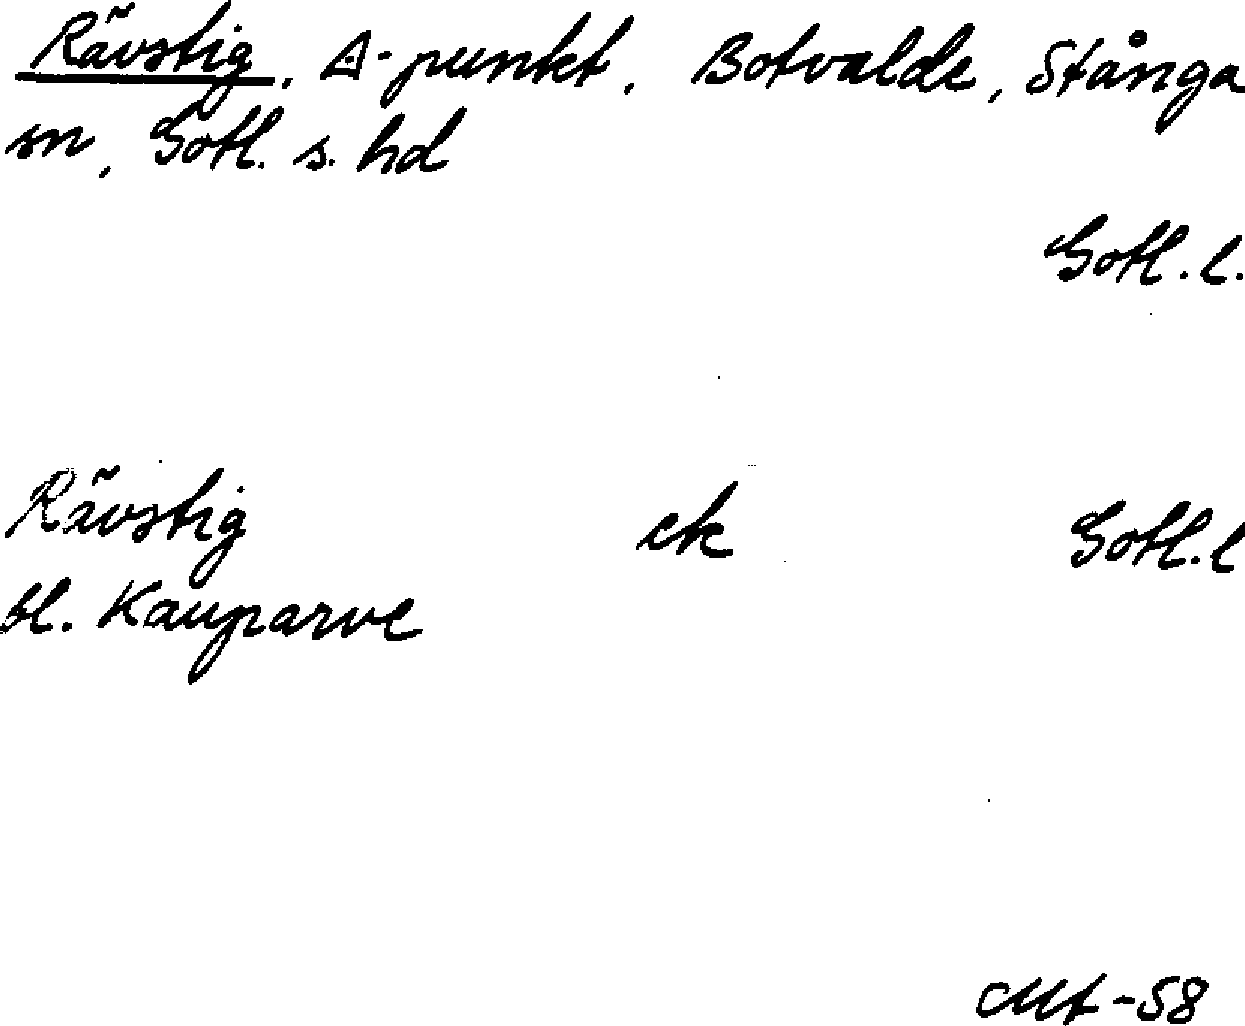 Rävstig, ◬-punkt, Botvalde, Stånga
sn, Gotl. s. hd
Gotl. l.
Rävstig ek Gotl. l
bl. Kauparve
Mt-58